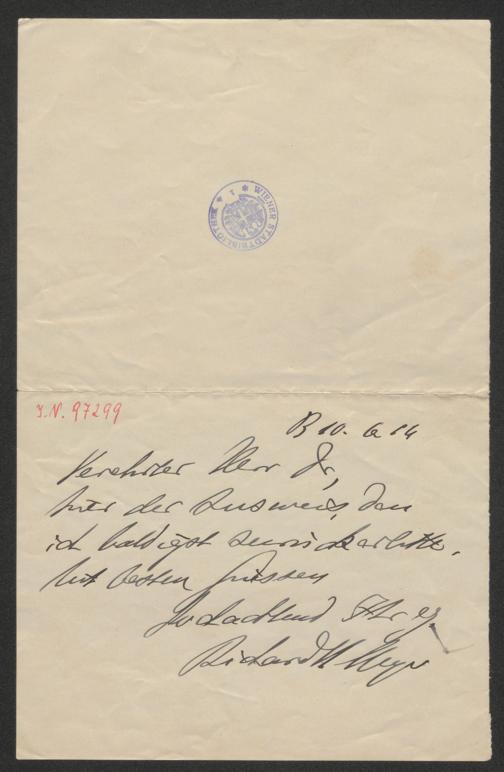 * WIENER STADTBIBLIOTHEK *
I.N. 97299
B 10. 6 14
Verehrter Herr Dr,
hier der Ausweis, den
ich baldigst zurückerbitte.
Mit besten Grüssen
Hochachtend Ihr erg.
Richard M Meyer